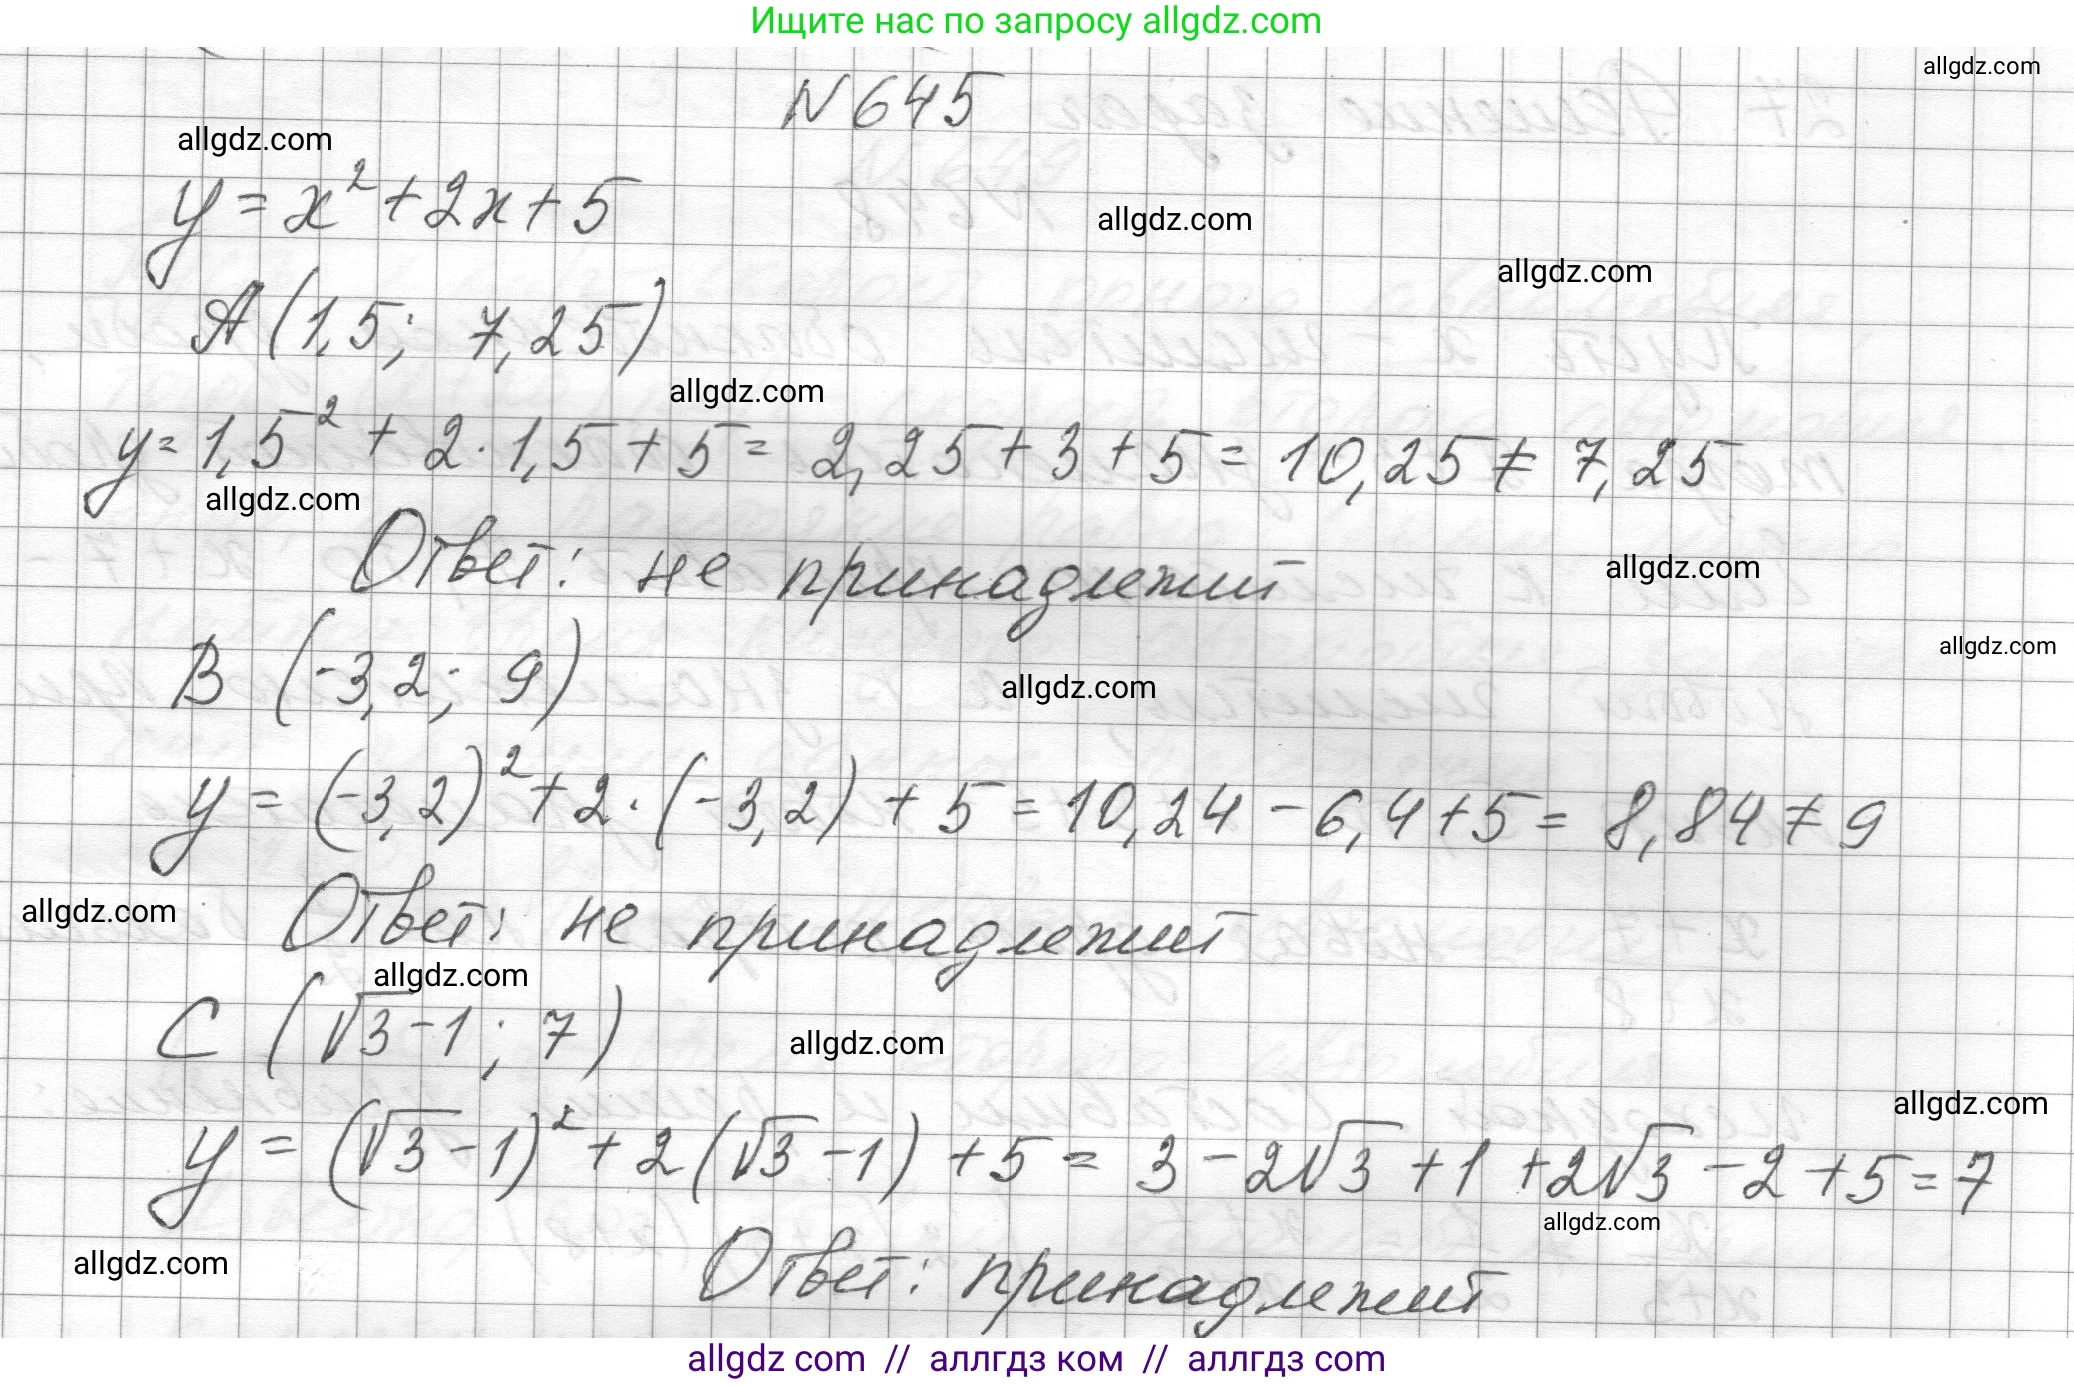 Ищите нас по запросу allgdz.com
allgdz.com
N 645
allgdz.com
y = x² + 2x + 5
allgdz.com
allgdz.com
A (1,5; 7,25)
allgdz.com
y = 1,5² + 2 · 1,5 + 5 = 2,25 + 3 + 5 = 10,25 ≠ 7,25
allgdz.com
Ответ: не принадлежит
allgdz.com
allgdz.com
B (-3,2; 9)
allgdz.com
y = (-3,2)² + 2 · (-3,2) + 5 = 10,24 - 6,4 + 5 = 8,84 ≠ 9
allgdz.com
Ответ: не принадлежит
allgdz.com
C (√3 - 1; 7)
allgdz.com
allgdz.com
y = (√3 - 1)² + 2(√3 - 1) + 5 = 3 - 2√3 + 1 + 2√3 - 2 + 5 = 7
allgdz.com
allgdz.com
Ответ: принадлежит
allgdz com // аллгдз ком // аллгдз com